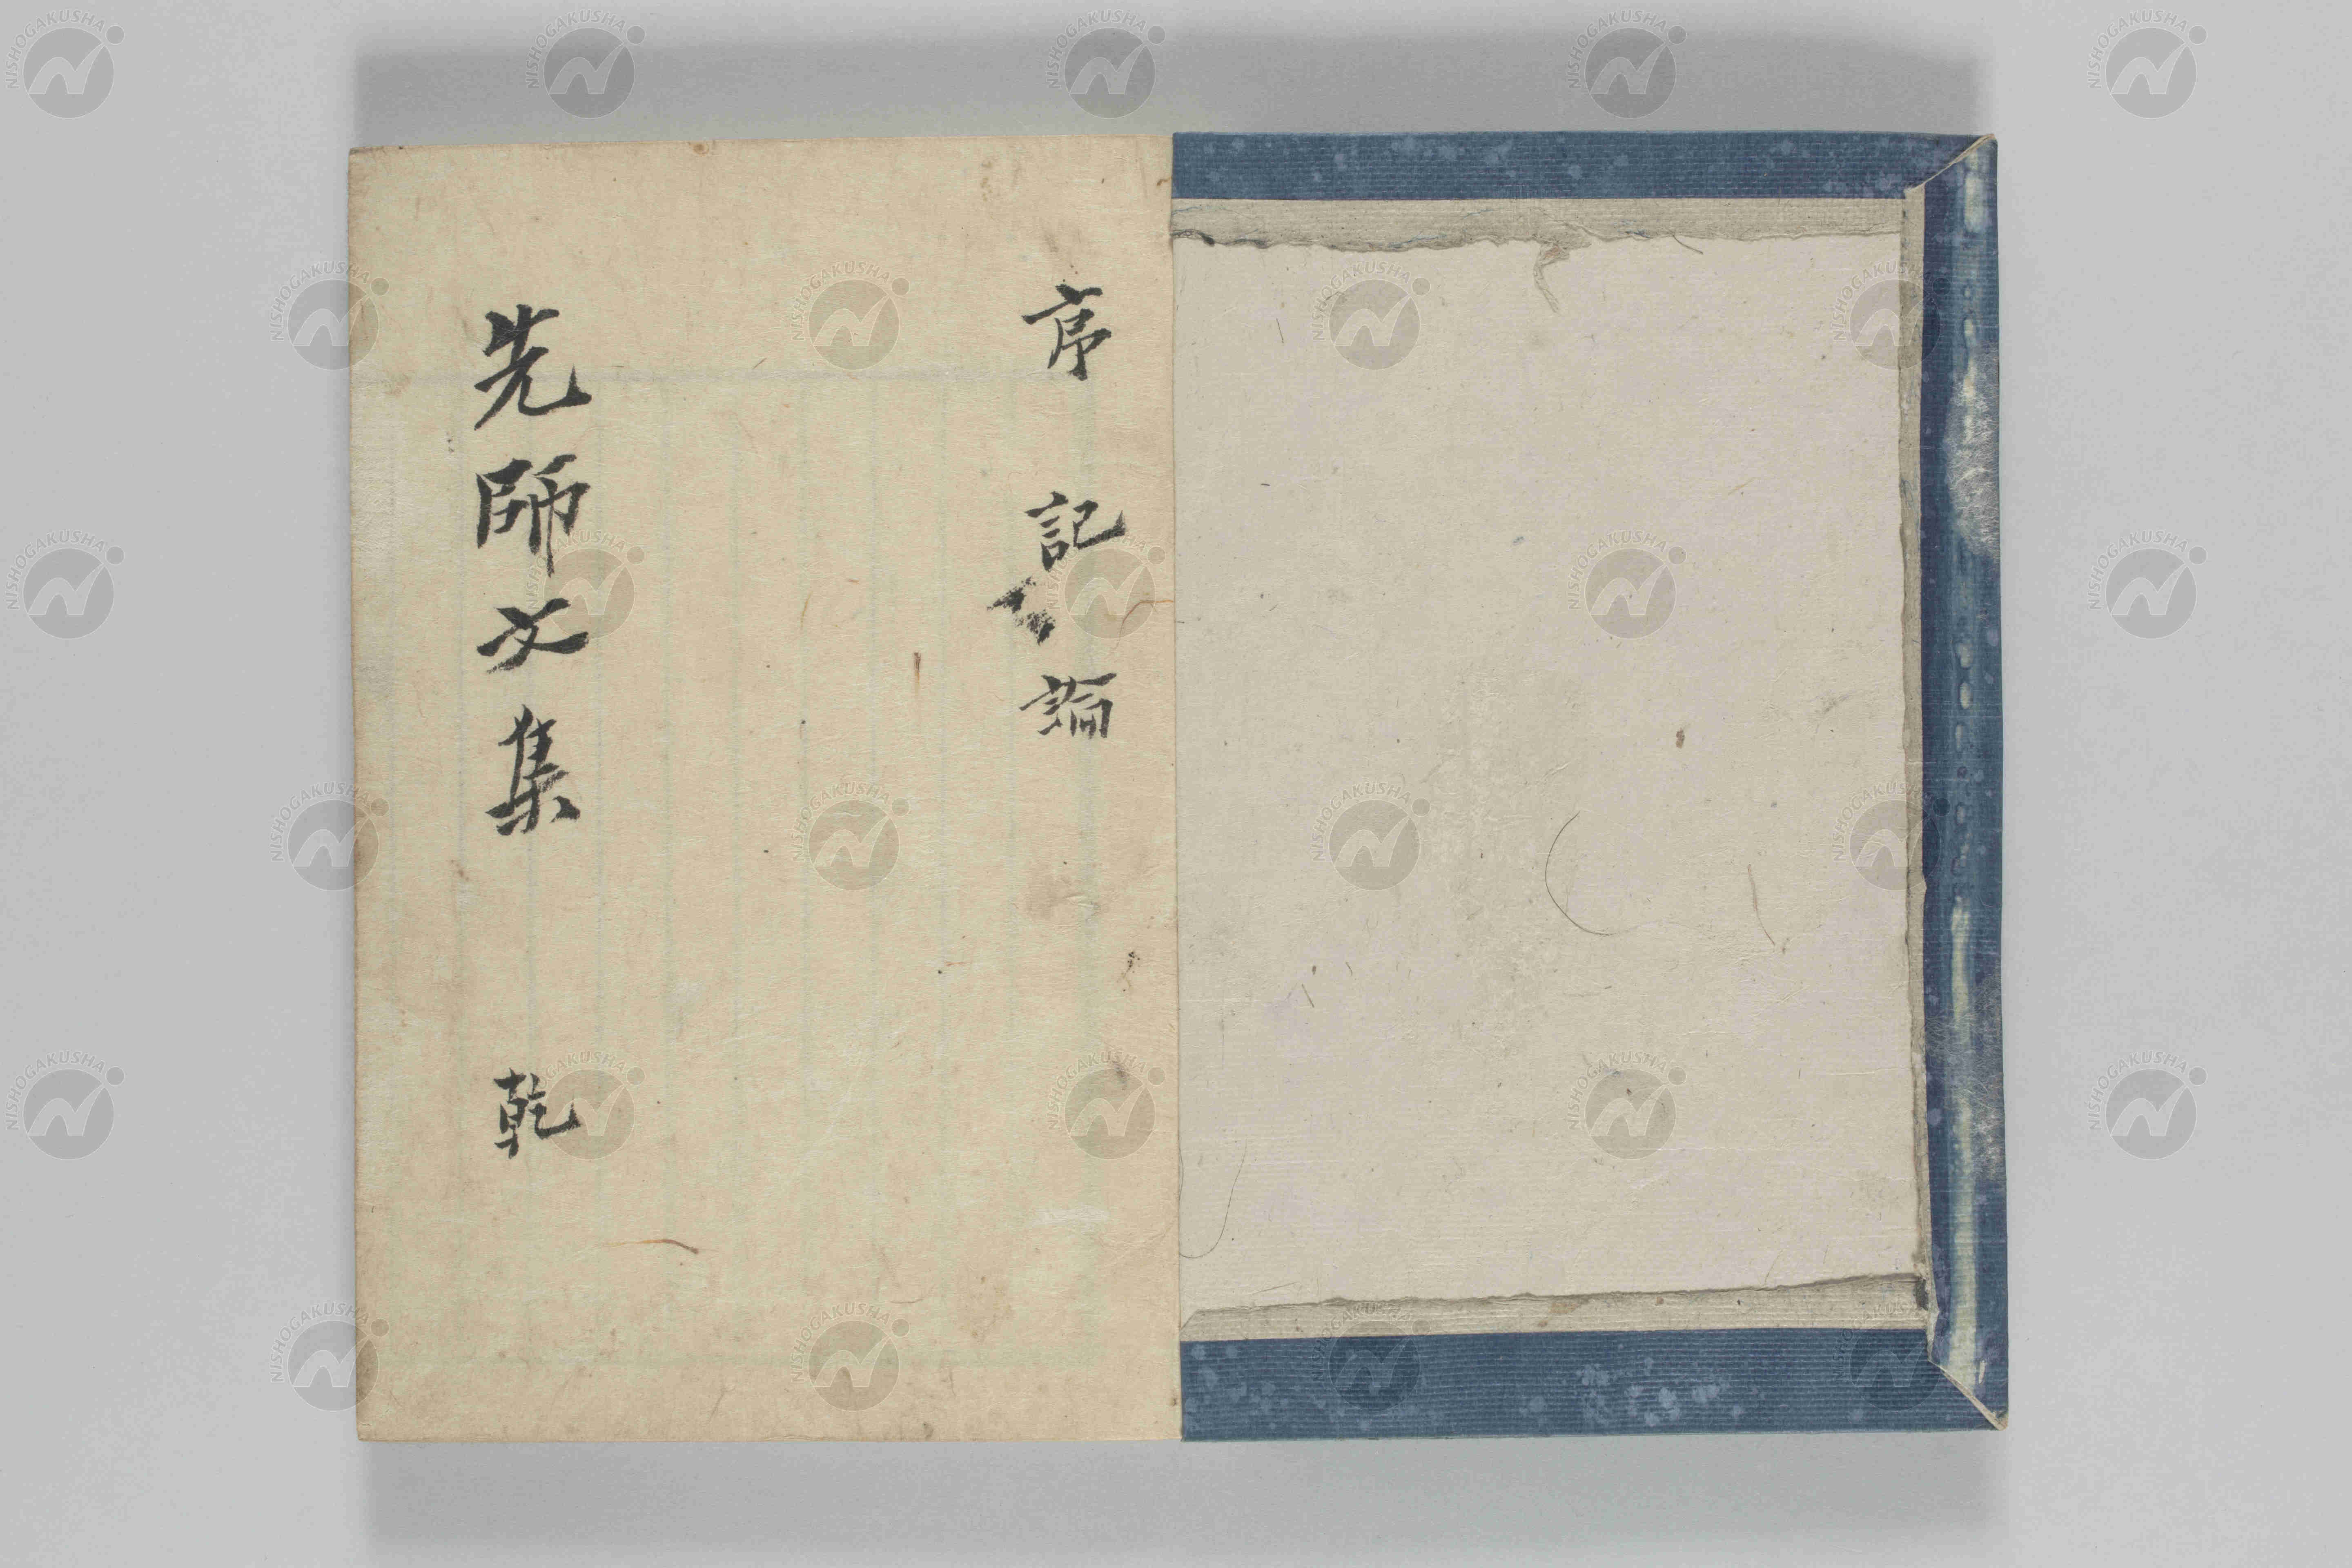 序 記 論
先師文集 乾
NISHOGAKUSHA